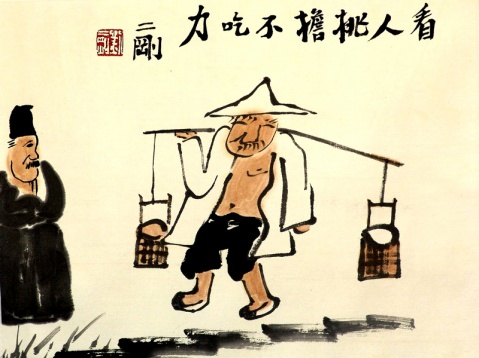 看人挑擔不吃力
二剛